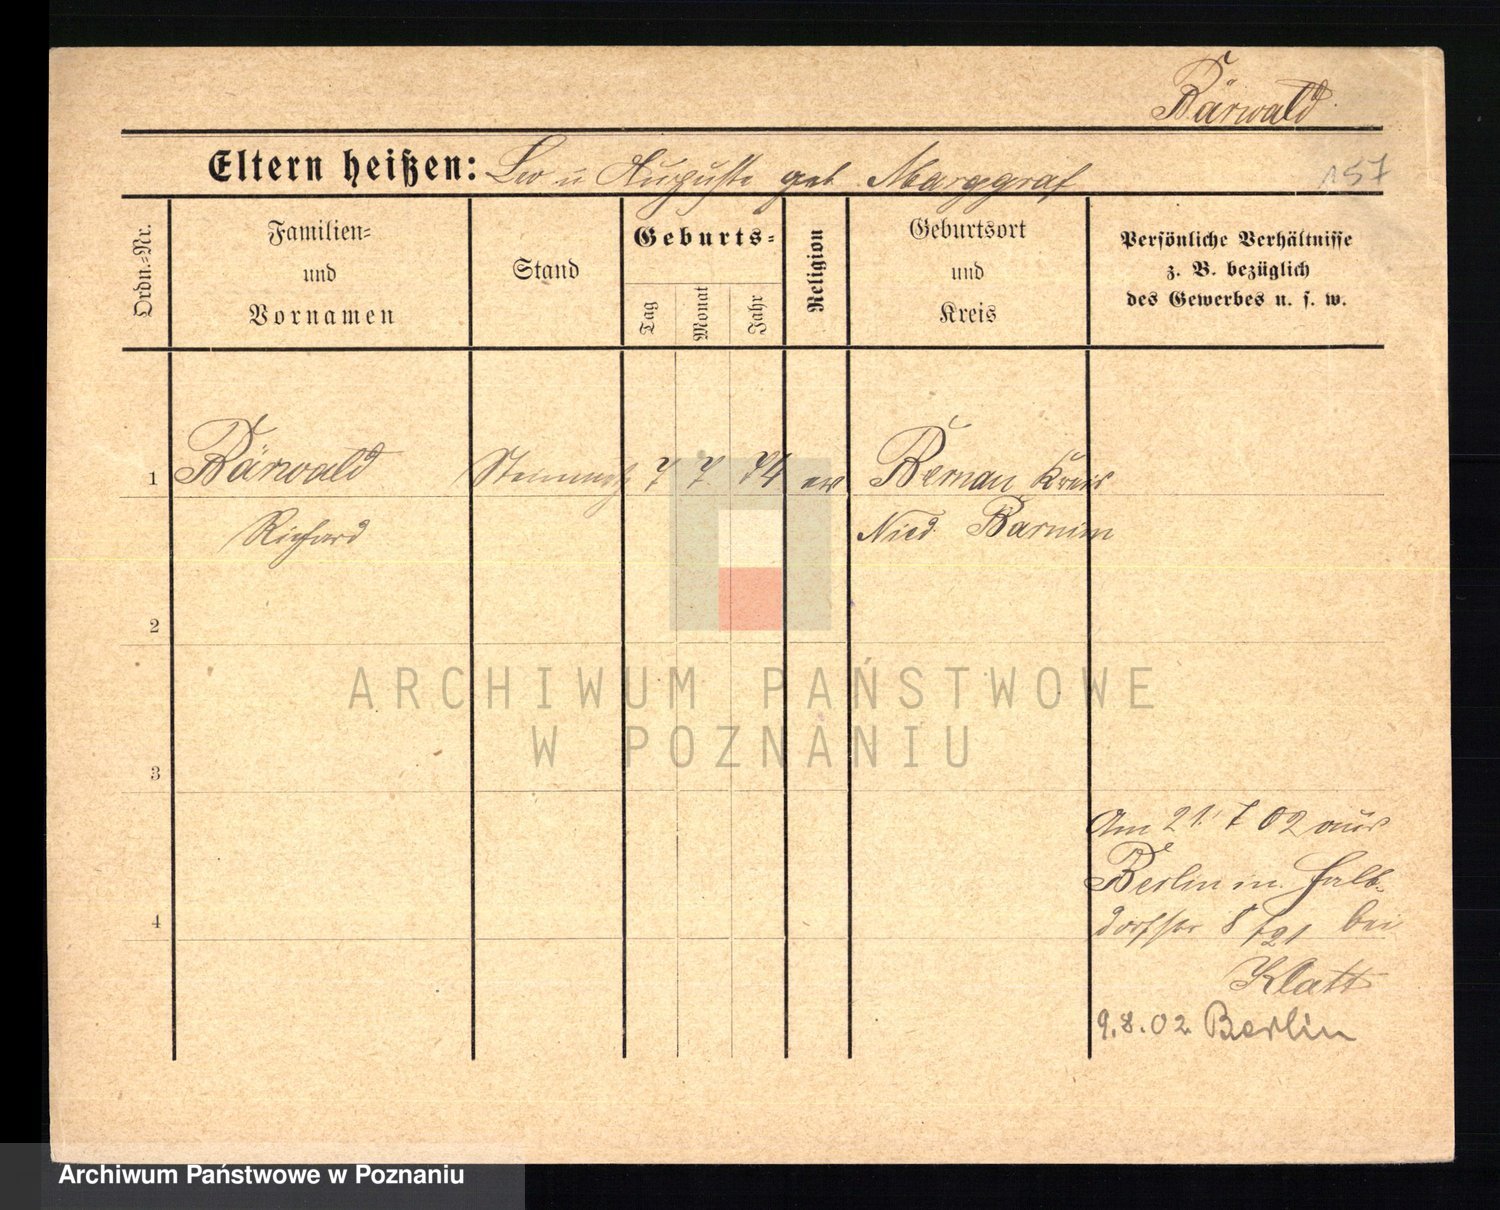 Bärwald
Eltern heißen: Leo u Auguste geb. Marggraf
157
Ordn.-Nr.
Familien-
und
Vornamen
Stand
Geburts-
Tag
Monat
Jahr
Religion
Geburtsort
und
Kreis
Persönliche Verhältnisse
z. B. bezüglich
des Gewerbes u. s. w.
1 Bärwald Steinmetz 7 7. 74 ev Bernau Kreis
Richard Nied. Barnim
2
ARCHIWUM PAŃSTWOWE
W POZNANIU
3
Am 21. 7 02 aus
Berlin in
4
8 bei
Klatt
9.8.02 Berlin
Archiwum Państwowe w Poznaniu